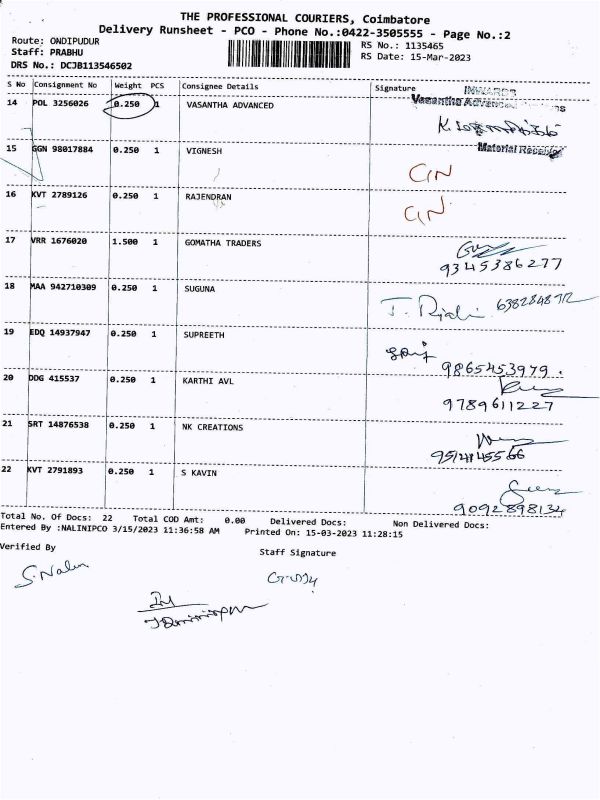 THE PROFESSIONAL COURIERS, Coimbatore
Delivery Runsheet - PCO - Phone No.:0422-3505555 - Page No.:2
Route: ONDIPUDUR
Staff: PRABHU
DRS No.: DCJB113546502
RS No.: 1135465
RS Date: 15-Mar-2023
S No Consignment No Weight PCS Consignee Details Signature
INWARDS
14 POL 3256026 0.250 1 VASANTHA ADVANCED Vasantha Advanced
Material Received
15 GGN 98017884 0.250 1 VIGNESH CIN
16 KVT 2789126 0.250 1 RAJENDRAN CIN
17 VRR 1676020 1.500 1 GOMATHA TRADERS
9345386277
18 MAA 942710309 0.250 1 SUGUNA
19 EDQ 14937947 0.250 1 SUPREETH
9865453979.
20 DDG 415537 0.250 1 KARTHI AVL
9789611227
21 SRT 14876538 0.250 1 NK CREATIONS
22 KVT 2791893 0.250 1 S KAVIN
9092898134
Total No. Of Docs: 22 Total COD Amt: 0.00 Delivered Docs: Non Delivered Docs:
Entered By :NALINIPCO 3/15/2023 11:36:58 AM Printed On: 15-03-2023 11:28:15
Verified By Staff Signature
S. Nalini